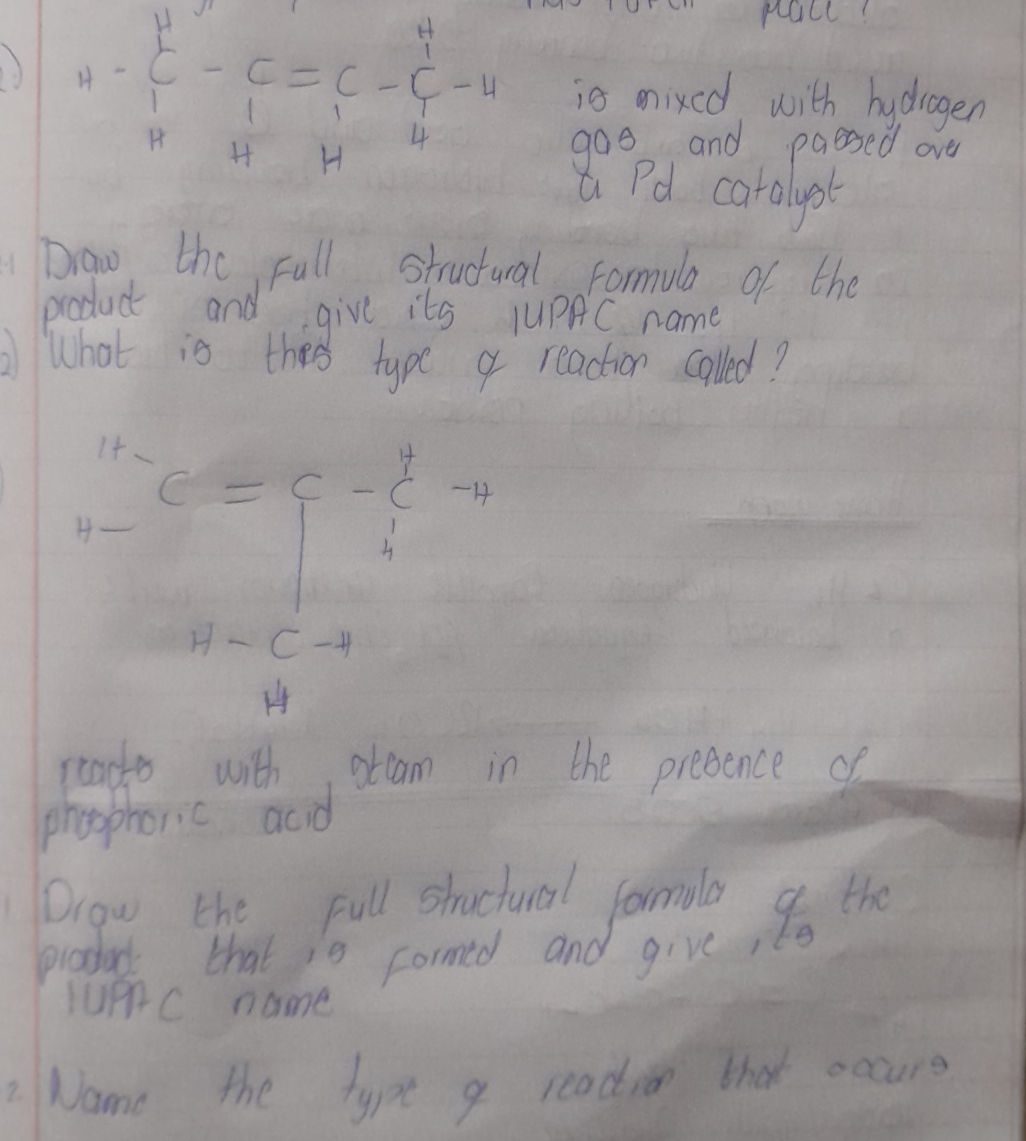 place?
H H
H - C - C = C - C - H
H H H H
is mixed with hydrogen
gas and passed over
a Pd catalyst
Draw the Full structural Formula of the
product and give its IUPAC name
2) What is this type of reaction called?
H H
C = C - C - H
H H
H - C - H
H
reacts with steam in the presence of
phosphoric acid
1 Draw the Full structural formula of the
product that is formed and give its
IUPAC name
2 Name the type of reaction that occurs